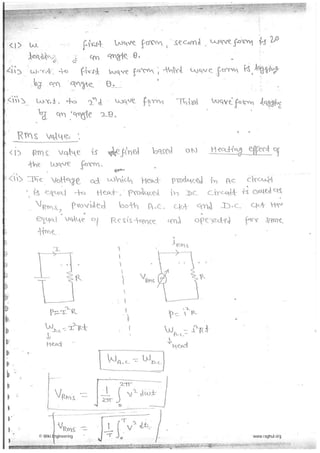 <i> w first wave form, second waveform is 20
leading an angle θ.
<ii> w.r.t. to first wave form, third wave form is lagging
by an angle θ.
<iii> w.r.t. to 2nd wave form Third wave form lagging
by an angle 2.θ.
Rms value :
<i> RMS value is defined based ON Heating effect of
the wave form.
<ii> The voltage at which Heat produced in AC circuit
is equal to Heat. Produced in DC circuit is called as
VRms, provided both A.C. ckt and D.C. ckt
equal value of Resistance and operated for same
time.
I
R
P=I²R
WD.C = I²Rt
Heat
iRms
VRms
R
P= i²R
WA.C = i²Rt
Heat
WA.C = WD.C
VRms = √ 1/2π ∫₀^2π v² dωt
VRms = √ 1/T ∫₀^T v² dt.
© Wiki Engineering
www.raghul.org